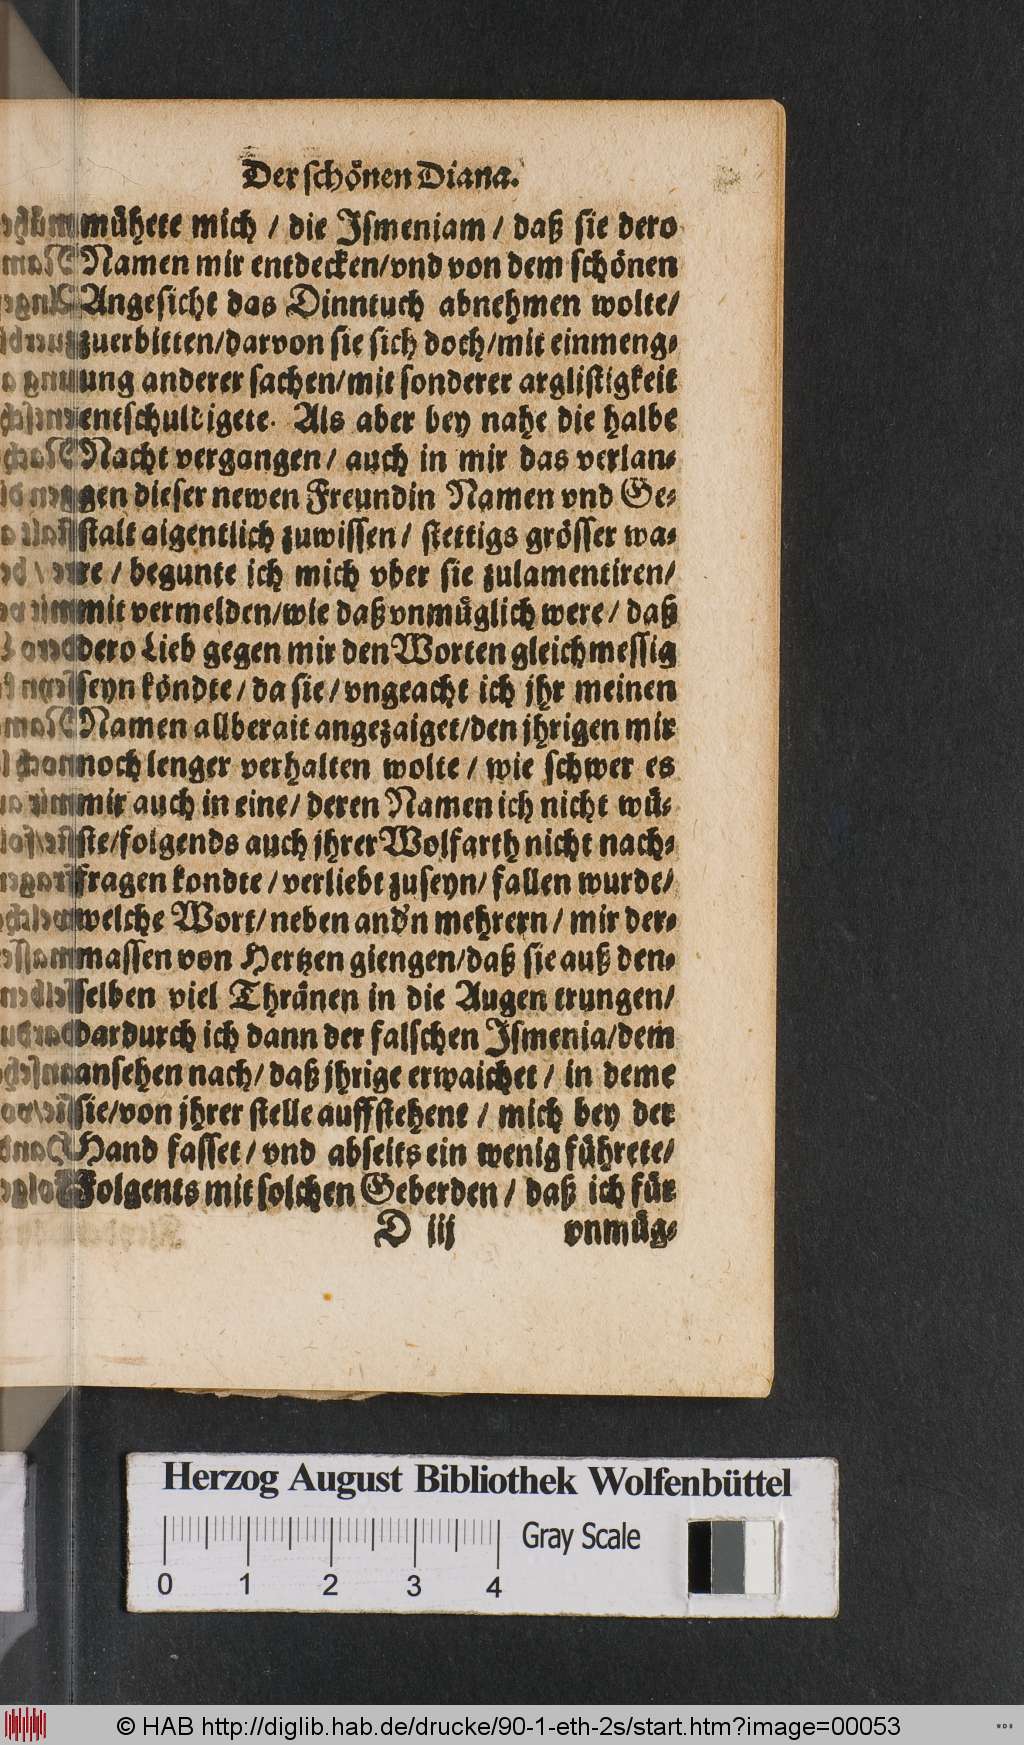 Der schönen Diana.
mühete mich / die Ismeniam / daß sie dero
Namen mir entdecken/vnd von dem schönen
Angesicht das Dinntuch abnehmen wolte/
zuerbitten/darvon sie sich doch/mit einmeng-
ung anderer sachen/mit sonderer arglistigkeit
entschuldigete. Als aber bey nahe die halbe
Nacht vergangen / auch in mir das verlan-
gen dieser newen Freundin Namen vnd Ge-
stalt aigentlich zuwissen / stettigs grösser wa-
re / begunte ich mich vber sie zulamentiren/
mit vermelden/wie daß vnmüglich were / daß
dero Lieb gegen mir den Worten gleichmessig
seyn köndte / da sie / vngeacht ich jhr meinen
Namen allberait angezaiget/den jhrigen mir
noch lenger verhalten wolte / wie schwer es
mir auch in eine / deren Namen ich nicht wü-
ste/folgends auch jhrer Wolfarth nicht nach-
fragen kondte / verliebt zuseyn/ fallen wurde/
welche Wort/ neben and'n mehrern / mir der-
massen von Hertzen giengen/daß sie auß den-
selben viel Thränen in die Augen trungen/
dardurch ich dann der falschen Ismenia/dem
ansehen nach/ daß jhrige erwaichet / in deme
sie/von jhrer stelle auffstehent / mich bey der
Hand fasset / vnd abseits ein wenig führete/
Folgents mit solchen Geberden / daß ich für
D iij vnmüg-
Herzog August Bibliothek Wolfenbüttel
Gray Scale
0 1 2 3 4
© HAB http://diglib.hab.de/drucke/90-1-eth-2s/start.htm?image=00053